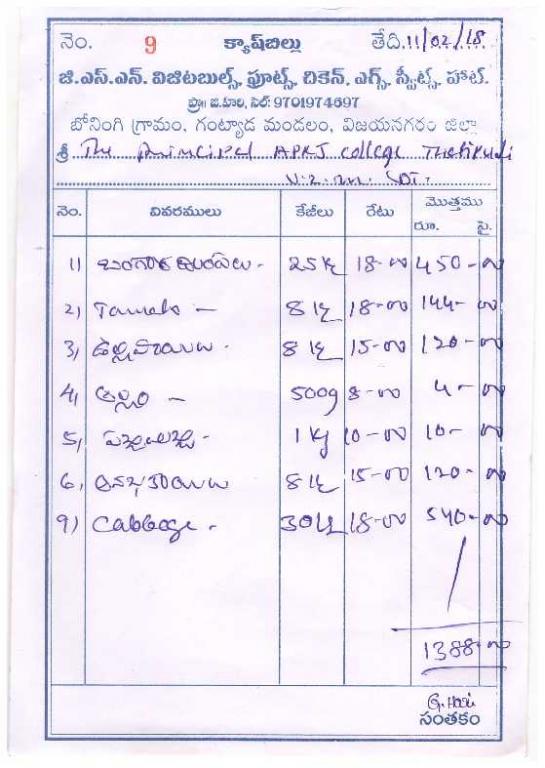 నెం. 9 క్యాష్‌బిల్లు తేది. 11/02/18
జి.ఎస్.ఎన్. విజిటబుల్స్, ఫ్రూట్స్, చికెన్, ఎగ్స్, స్వీట్స్, హాట్.
ప్రొః జి.హరి, సెల్: 9701974697
బోనింగి గ్రామం, గంట్యాడ మండలం, విజయనగరం జిల్లా
శ్రీ The Principal APRJ College Thatipudi
V.Z.M. DT.
నెం. వివరములు కేజీలు రేటు మొత్తము
రూ. పై.
1) బంగాళదుంపలు - 25 kg 18-00 450-00
2) Tamato - 8 kg 18-00 144-00
3) ఉల్లిపాయలు - 8 kg 15-00 120-00
4) అల్లం - 500g 8-00 4-00
5) 1 Kg 10-00 10-00
6) ఆనబకాయలు 8 kg 15-00 120-00
9) Cabbage - 30 kg 18-00 540-00
1388-00
G. Hari
సంతకం